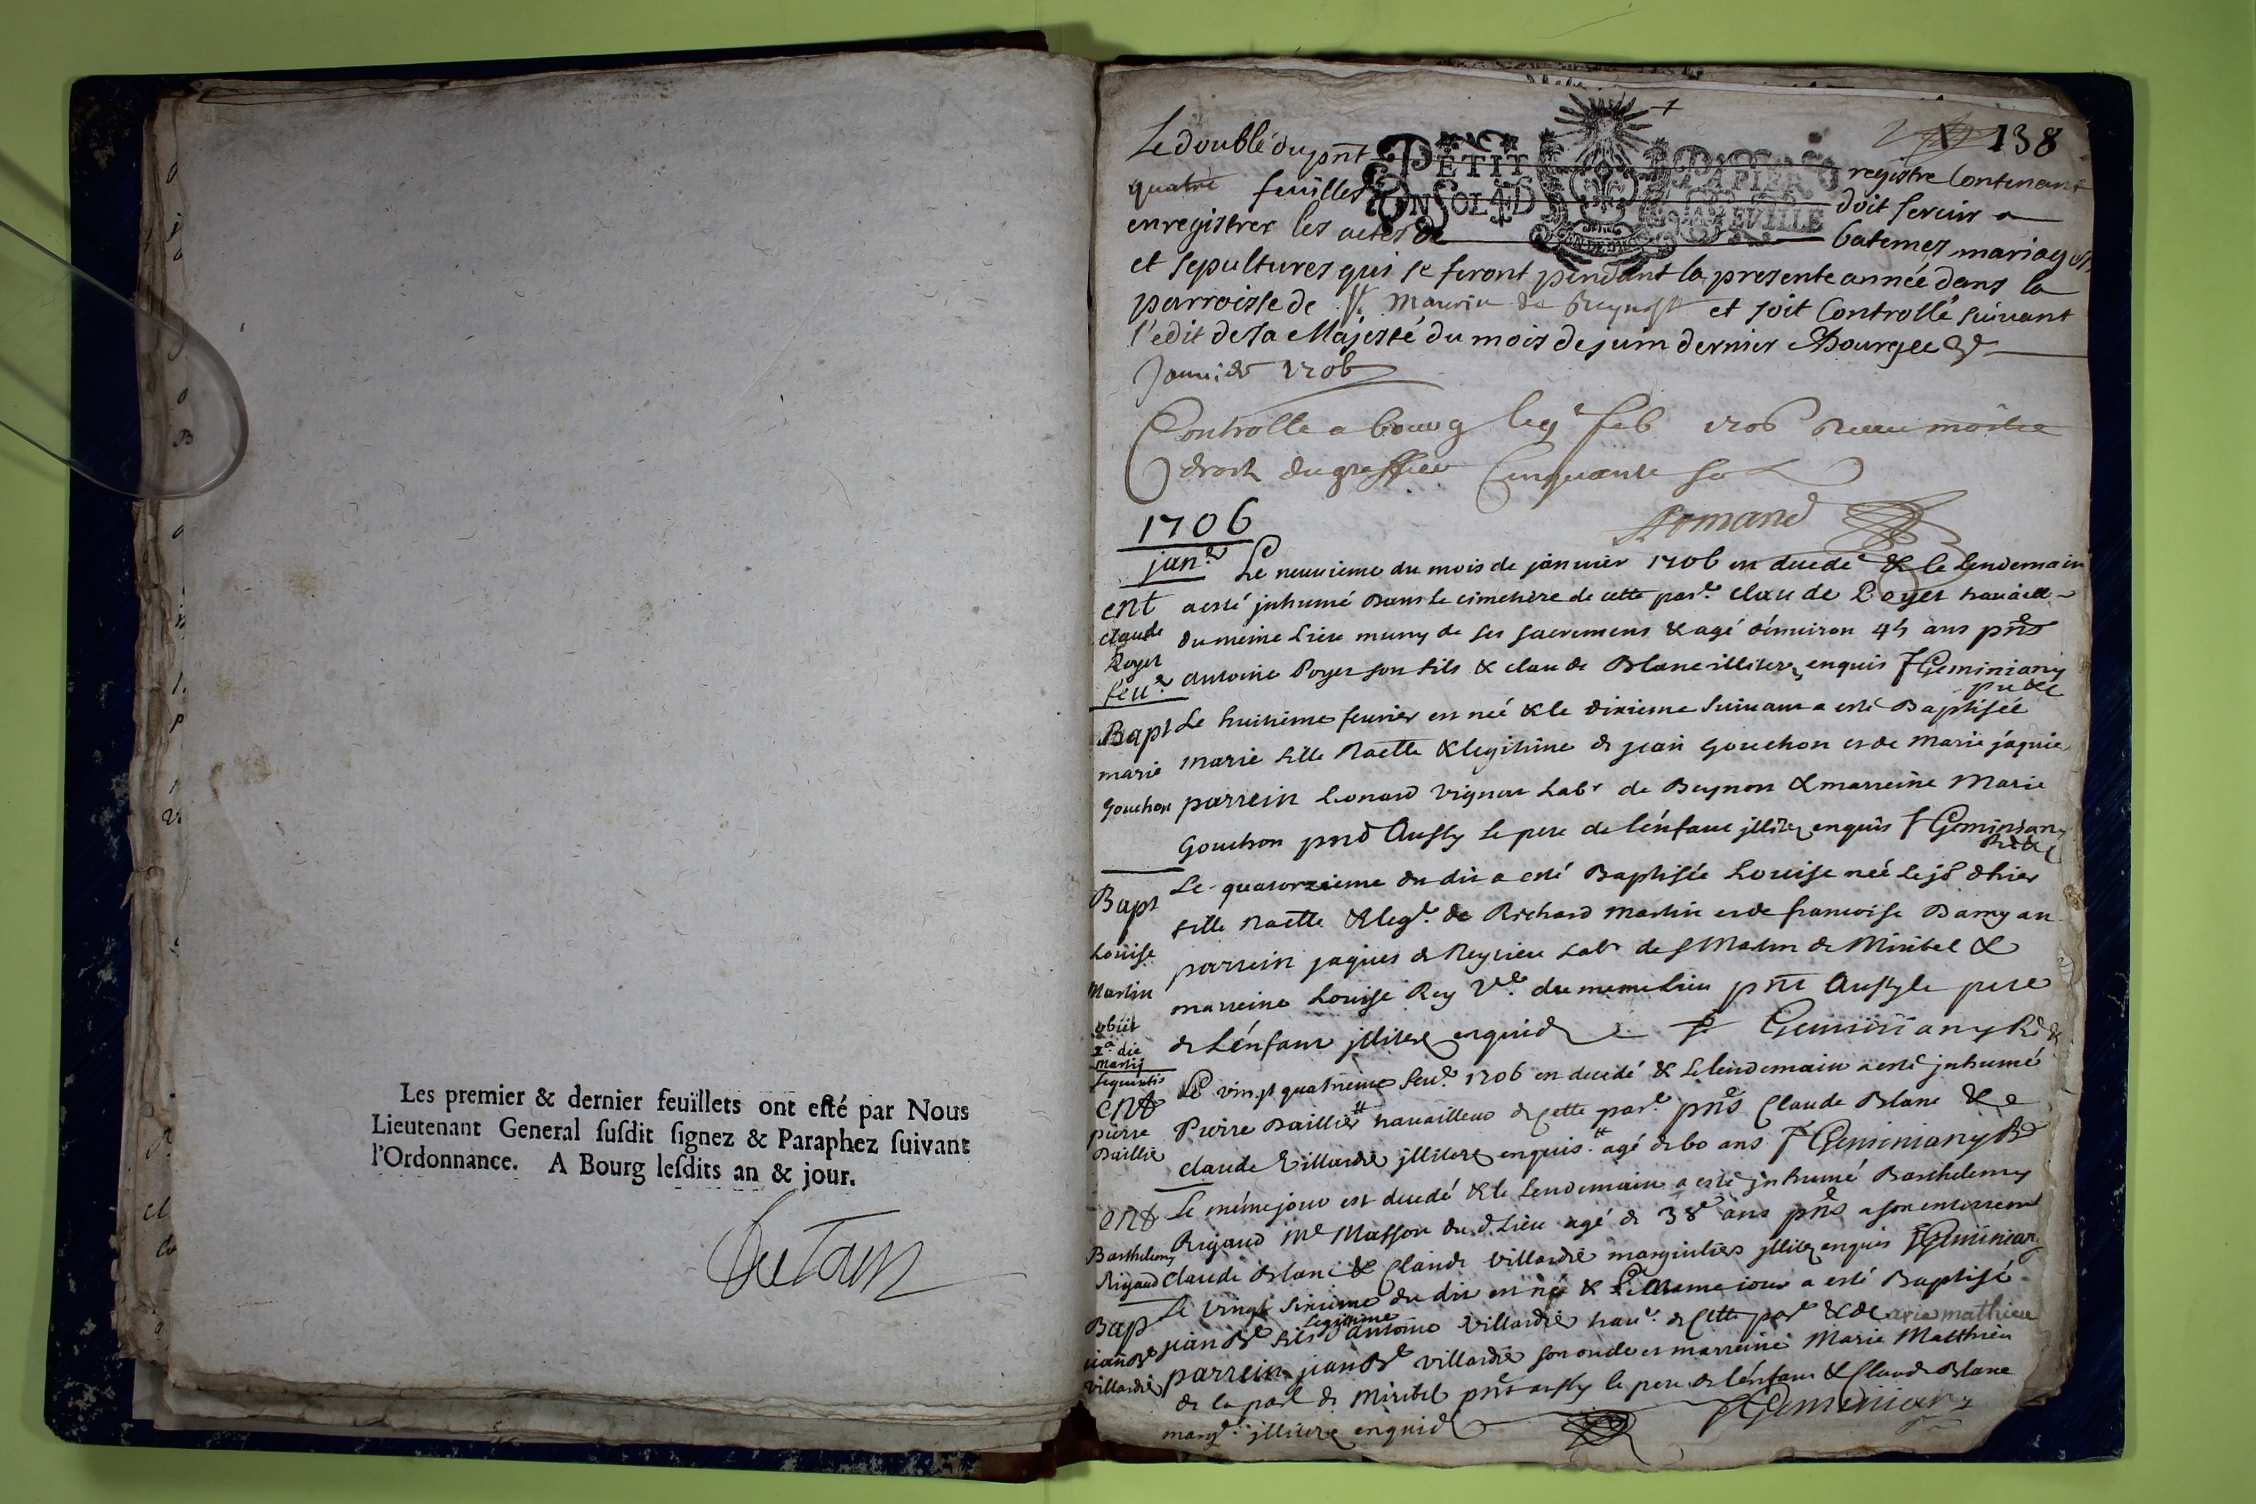 Les premier & dernier feuillets ont esté par Nous
Lieutenant General susdit signez & Paraphez suivant
l'Ordonnance. A Bourg lesdits an & jour.
138
Le double du pnt PETIT PAPIER registre Contenant
quatre feuilles UN SOL 4 D LA FEUILLE doit servir a
enregistrer les actes de batemes mariages
et sepultures qui se feront pendant la presente année dans la
parroisse de St Maurice de et soit Controllé suivant
l'edit de sa Majesté du mois de juin dernier A Bourg le
Janvier 1706
Controllé a bourg le feb 1706
droit du greffier Cinquante sol
Armand
1706
janer Le neuvieme du mois de janvier 1706 en decedé & le lendemain
ent a esté inhumé dans le cimetiere de cette par.e claude Poyet
claude du meme lieu muny de ses sacremens & agé d'environ 45 ans pnts
Poyet antoine Poyet son fils & claude Blanc illiterez enquis f Geminiany
feur.
Bapt Le huitieme fevrier en née & le dixieme suivant a esté Baptisée
marie marie fille naelle & legitime de jean Gouchon et de Marie jaquie
Gouchon parrein Leonard vignat Labr de Beynon & marreine Marie
Gouchon pnt Aussy le pere de l'enfant illiter enquis f Geminiany
Bapt Le quatorzieme du dit a esté Baptisée Louise née le jr d'hier
Louise fille naelle & leg.e de Richard Martin et de francoise
Martin parrein jaques de Reyrieu Labr de St Martin de Miribel &
obiit marreine Louise Rey Ve. du meme lieu pnt Aussy le pere
2a die de L'énfant illiteré enquis f Geminiany
martij
sequentis
ent Le vingt quatrieme fevr. 1706 en decedé & le lendemain a esté inhumé
pierre Pierre Baillié travailleur de cette par.e pnts Claude Blanc &
Baillié claude Villardié illiterez enquis agé de 60 ans f Geminiany
ent Le même jour est decedé & le lendemain a esté inhumé Barthelemy
Barthelemy Rigaud Me Masson du d. Lieu agé de 38 ans pnts a son enterrement
Rigaud Claude Blanc & Claude Villardié margiuliers illiterz enquis f Geminiany
Bap Le vingt sixieme du dit en né & le meme jour a esté Baptisé
jean Bte jean Bte fils legitime d'Antoine Villardié trav. de cette par.e & de marie mathieu
villardié parrein jean Bte Villardié son oncle et marreine Marie Matthieu
de la par.e de Miribel pnts aussy le pere de l'énfant & Claude Blanc
marg.r illiteré enquis f Geminiany